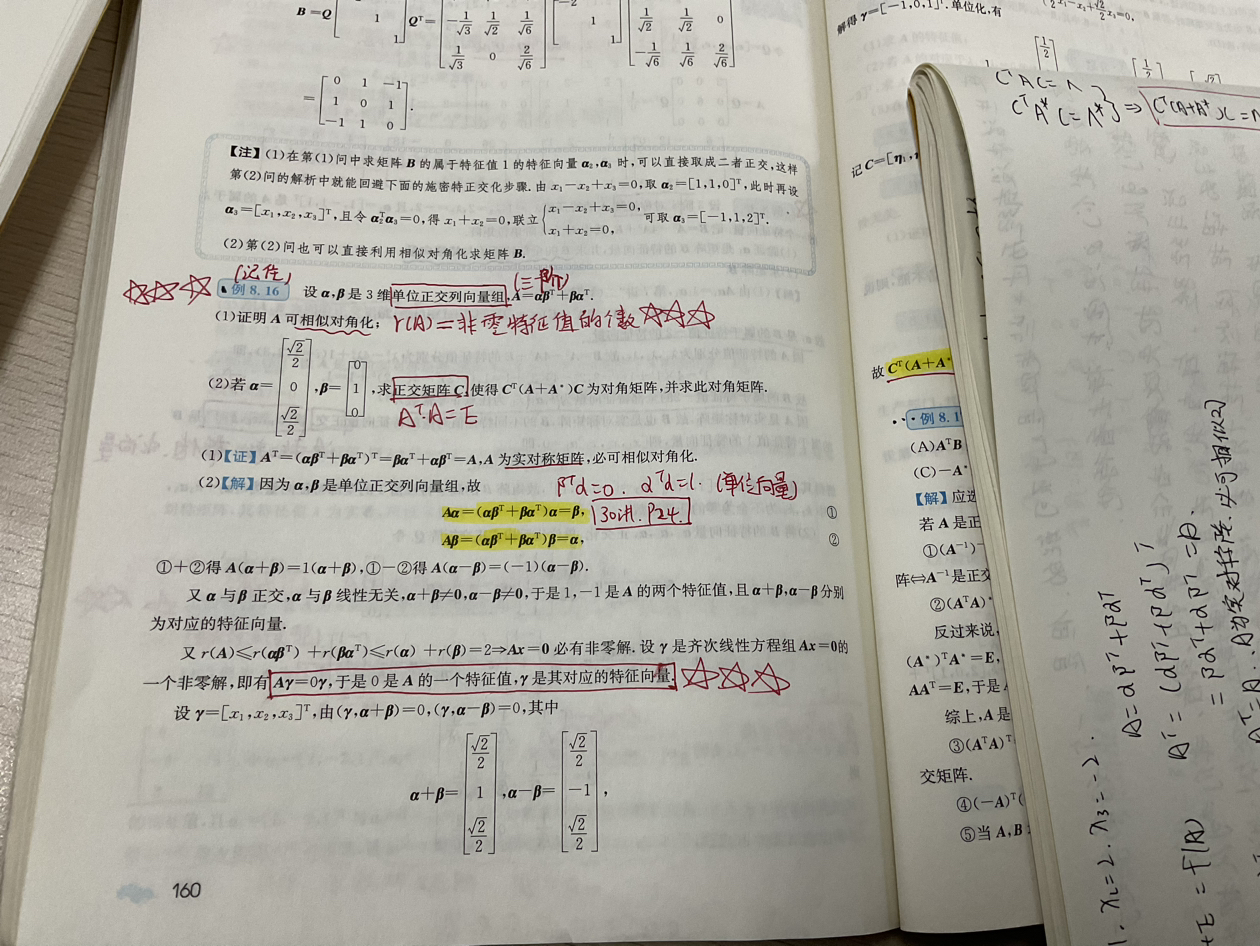 B=Q[ 1 1]Qᵀ=[-1/√3 1/√2 1/√6 1/√3 0 2/√6][-2 1 1][1/√2 1/√2 0 -1/√6 1/√6 2/√6]
=[0 1 -1 1 0 1 -1 1 0].
【注】(1)在第(1)问中求矩阵 B 的属于特征值 1 的特征向量 α₂,α₃ 时,可以直接取成二者正交,这样
第(2)问的解析中就能回避下面的施密特正交化步骤.由 x₁-x₂+x₃=0,取 α₂=[1,1,0]ᵀ,此时再设
α₃=[x₁,x₂,x₃]ᵀ,且令 α₂ᵀα₃=0,得 x₁+x₂=0,联立{x₁-x₂+x₃=0, x₁+x₂=0, 可取 α₃=[-1,1,2]ᵀ.
(2)第(2)问也可以直接利用相似对角化求矩阵 B.
(记住)
例 8.16 设 α,β 是 3 维单位正交列向量组,A=αβᵀ+βαᵀ.
(1)证明 A 可相似对角化;
r(A)=非零特征值的个数
(2)若 α=[√2/2 0 √2/2],β=[0 1 0],求正交矩阵 C,使得 Cᵀ(A+A*)C 为对角矩阵,并求此对角矩阵.
Aᵀ·A=E
(1)【证】Aᵀ=(αβᵀ+βαᵀ)ᵀ=βαᵀ+αβᵀ=A,A 为实对称矩阵,必可相似对角化.
(2)【解】因为 α,β 是单位正交列向量组,故
βᵀα=0. αᵀα=1. (单位向量)
Aα=(αβᵀ+βαᵀ)α=β, ①
30讲.P24.
Aβ=(αβᵀ+βαᵀ)β=α, ②
①+②得 A(α+β)=1(α+β),①-②得 A(α-β)=(-1)(α-β).
又 α 与 β 正交,α 与 β 线性无关,α+β≠0,α-β≠0,于是 1,-1 是 A 的两个特征值,且 α+β,α-β 分别
为对应的特征向量.
又 r(A)≤r(αβᵀ)+r(βαᵀ)≤r(α)+r(β)=2⇒Ax=0 必有非零解.设 γ 是齐次线性方程组 Ax=0 的
一个非零解,即有 Aγ=0γ,于是 0 是 A 的一个特征值,γ 是其对应的特征向量.
设 γ=[x₁,x₂,x₃]ᵀ,由(γ,α+β)=0,(γ,α-β)=0,其中
α+β=[√2/2 1 √2/2],α-β=[√2/2 -1 √2/2],
160
解得 γ=[-1,0,1]ᵀ.单位化,有
记 C=[η₁,
故 Cᵀ(A+A*
例 8.1
(A)AᵀB
(C)-A*
【解】应选
若 A 是正
①(A⁻¹)⁻
阵⇔A⁻¹是正交
②(AᵀA)*
反过来说,
(A*)ᵀA*=E,
AAᵀ=E,于是 A
综上,A 是
③(AᵀA)ᵀ
交矩阵.
④(-A)ᵀ(
⑤当 A,B
CᵀAC=Λ
CᵀA*C=Λ*}⇒Cᵀ(A+A*)C=Λ
A=αβᵀ+βαᵀ
Aᵀ=(αβᵀ+βαᵀ)ᵀ
=βαᵀ+αβᵀ=A.
Aᵀ=A. A为实对称阵.
1. x₂=2. x₃=-2.
+E=f(A)